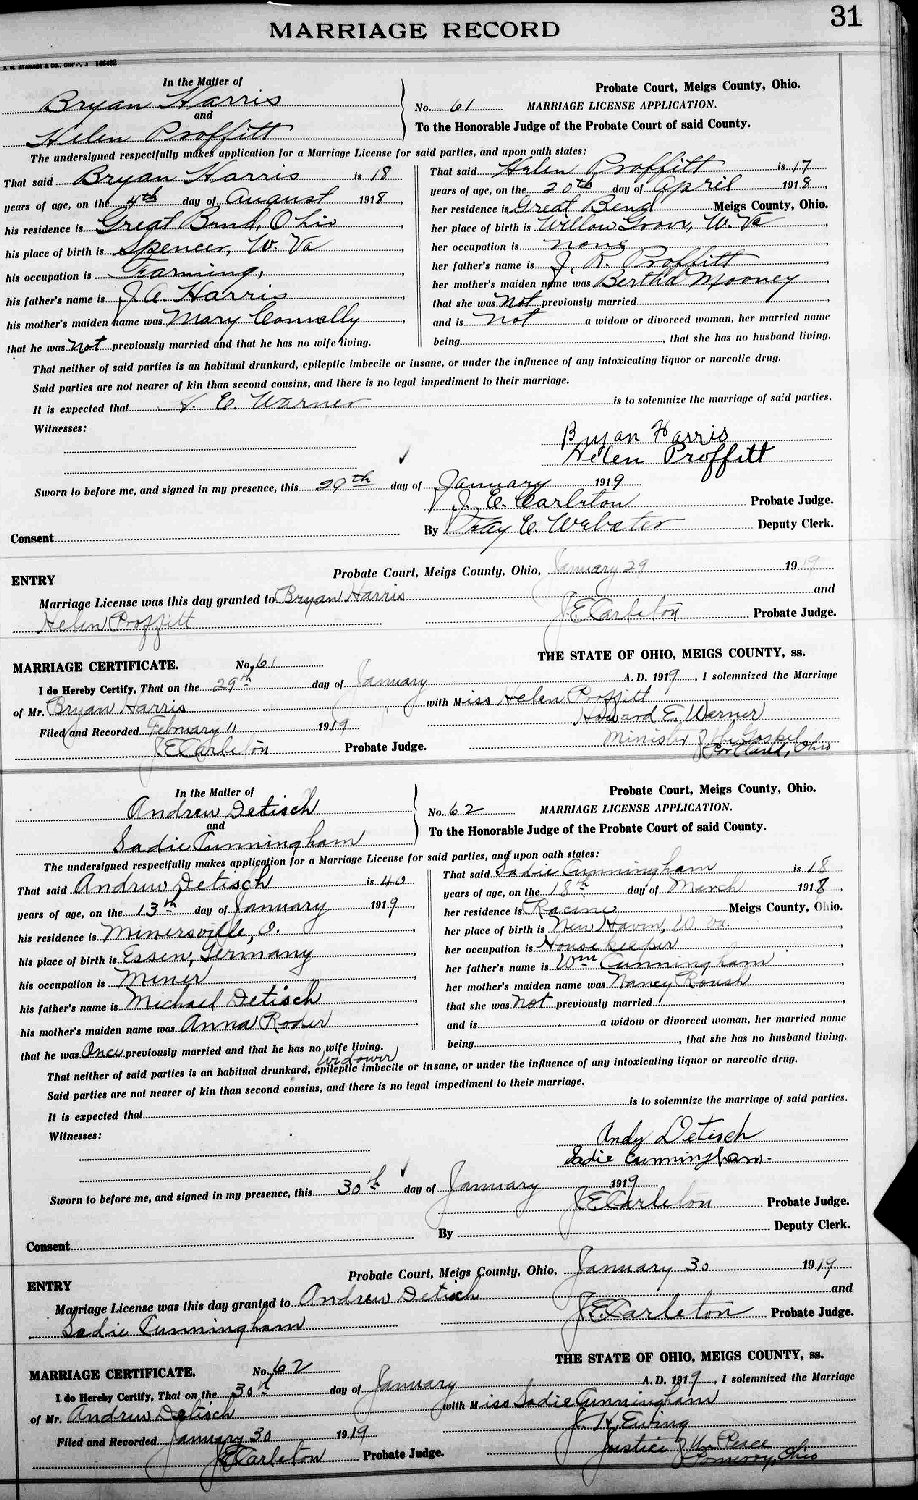 31
MARRIAGE RECORD
In the Matter of
Bryan Harris
and
Helen Proffitt
Probate Court, Meigs County, Ohio.
No. 61 MARRIAGE LICENSE APPLICATION.
To the Honorable Judge of the Probate Court of said County.
The undersigned respectfully makes application for a Marriage License for said parties, and upon oath states:
That said Bryan Harris is 18
years of age, on the 4th day of August 1918
his residence is Great Bend, Ohio
his place of birth is Spencer, W. Va
his occupation is Farming,
his father's name is J. A. Harris
his mother's maiden name was Mary Connolly
that he was not previously married and that he has no wife living.
That said Helen Proffitt is 17
years of age, on the 20th day of April 1918
her residence is Great Bend Meigs County, Ohio.
her place of birth is Willow Grove, W. Va
her occupation is none
her father's name is J. R. Proffitt
her mother's maiden name was Bertha Mooney
that she was not previously married
and is not a widow or divorced woman, her married name
being , that she has no husband living.
That neither of said parties is an habitual drunkard, epileptic imbecile or insane, or under the influence of any intoxicating liquor or narcotic drug.
Said parties are not nearer of kin than second cousins, and there is no legal impediment to their marriage.
It is expected that E. Warner is to solemnize the marriage of said parties.
Witnesses:
Bryan Harris
Helen Proffitt
Sworn to before me, and signed in my presence, this 29th day of January 1919
J. E. Carleton Probate Judge.
Consent By Fay E. Webster Deputy Clerk.
ENTRY
Probate Court, Meigs County, Ohio, January 29 1919
Marriage License was this day granted to Bryan Harris and
Helen Proffitt J E Carleton Probate Judge.
MARRIAGE CERTIFICATE. No. 61 THE STATE OF OHIO, MEIGS COUNTY, ss.
I do Hereby Certify, That on the 29th day of January A. D. 1919, I solemnized the Marriage
of Mr. Bryan Harris with Miss Helen Proffitt
Filed and Recorded February 11 1919 Howard E. Warner
J E Carleton Probate Judge. Minister of the Gospel
Portland, Ohio
In the Matter of
Andrew Detisch
and
Sadie Cunningham
Probate Court, Meigs County, Ohio.
No. 62 MARRIAGE LICENSE APPLICATION.
To the Honorable Judge of the Probate Court of said County.
The undersigned respectfully makes application for a Marriage License for said parties, and upon oath states:
That said Andrew Detisch is 40
years of age, on the 13th day of January 1919
his residence is Minersville, O.
his place of birth is Essen, Germany
his occupation is Miner
his father's name is Michael Detisch
his mother's maiden name was Anna Roder
that he was Once previously married and that he has no wife living.
Widower
That said Sadie Cunningham is 18
years of age, on the 18th day of March 1918
her residence is Racine Meigs County, Ohio.
her place of birth is New Haven, W. Va.
her occupation is Housekeeper
her father's name is Wm Cunningham
her mother's maiden name was Nancy Roush
that she was not previously married
and is a widow or divorced woman, her married name
being , that she has no husband living.
That neither of said parties is an habitual drunkard, epileptic imbecile or insane, or under the influence of any intoxicating liquor or narcotic drug.
Said parties are not nearer of kin than second cousins, and there is no legal impediment to their marriage.
It is expected that is to solemnize the marriage of said parties.
Witnesses:
Andy Detisch
Sadie Cunningham
Sworn to before me, and signed in my presence, this 30th day of January 1919
J E Carleton Probate Judge.
Consent By Deputy Clerk.
ENTRY
Probate Court, Meigs County, Ohio, January 30 1919
Marriage License was this day granted to Andrew Detisch and
Sadie Cunningham J E Carleton Probate Judge.
MARRIAGE CERTIFICATE. No. 62 THE STATE OF OHIO, MEIGS COUNTY, ss.
I do Hereby Certify, That on the 30th day of January A. D. 1919, I solemnized the Marriage
of Mr. Andrew Detisch with Miss Sadie Cunningham
Filed and Recorded January 30 1919 J. H. Ewing
J E Carleton Probate Judge. Justice of the Peace
Pomeroy, Ohio